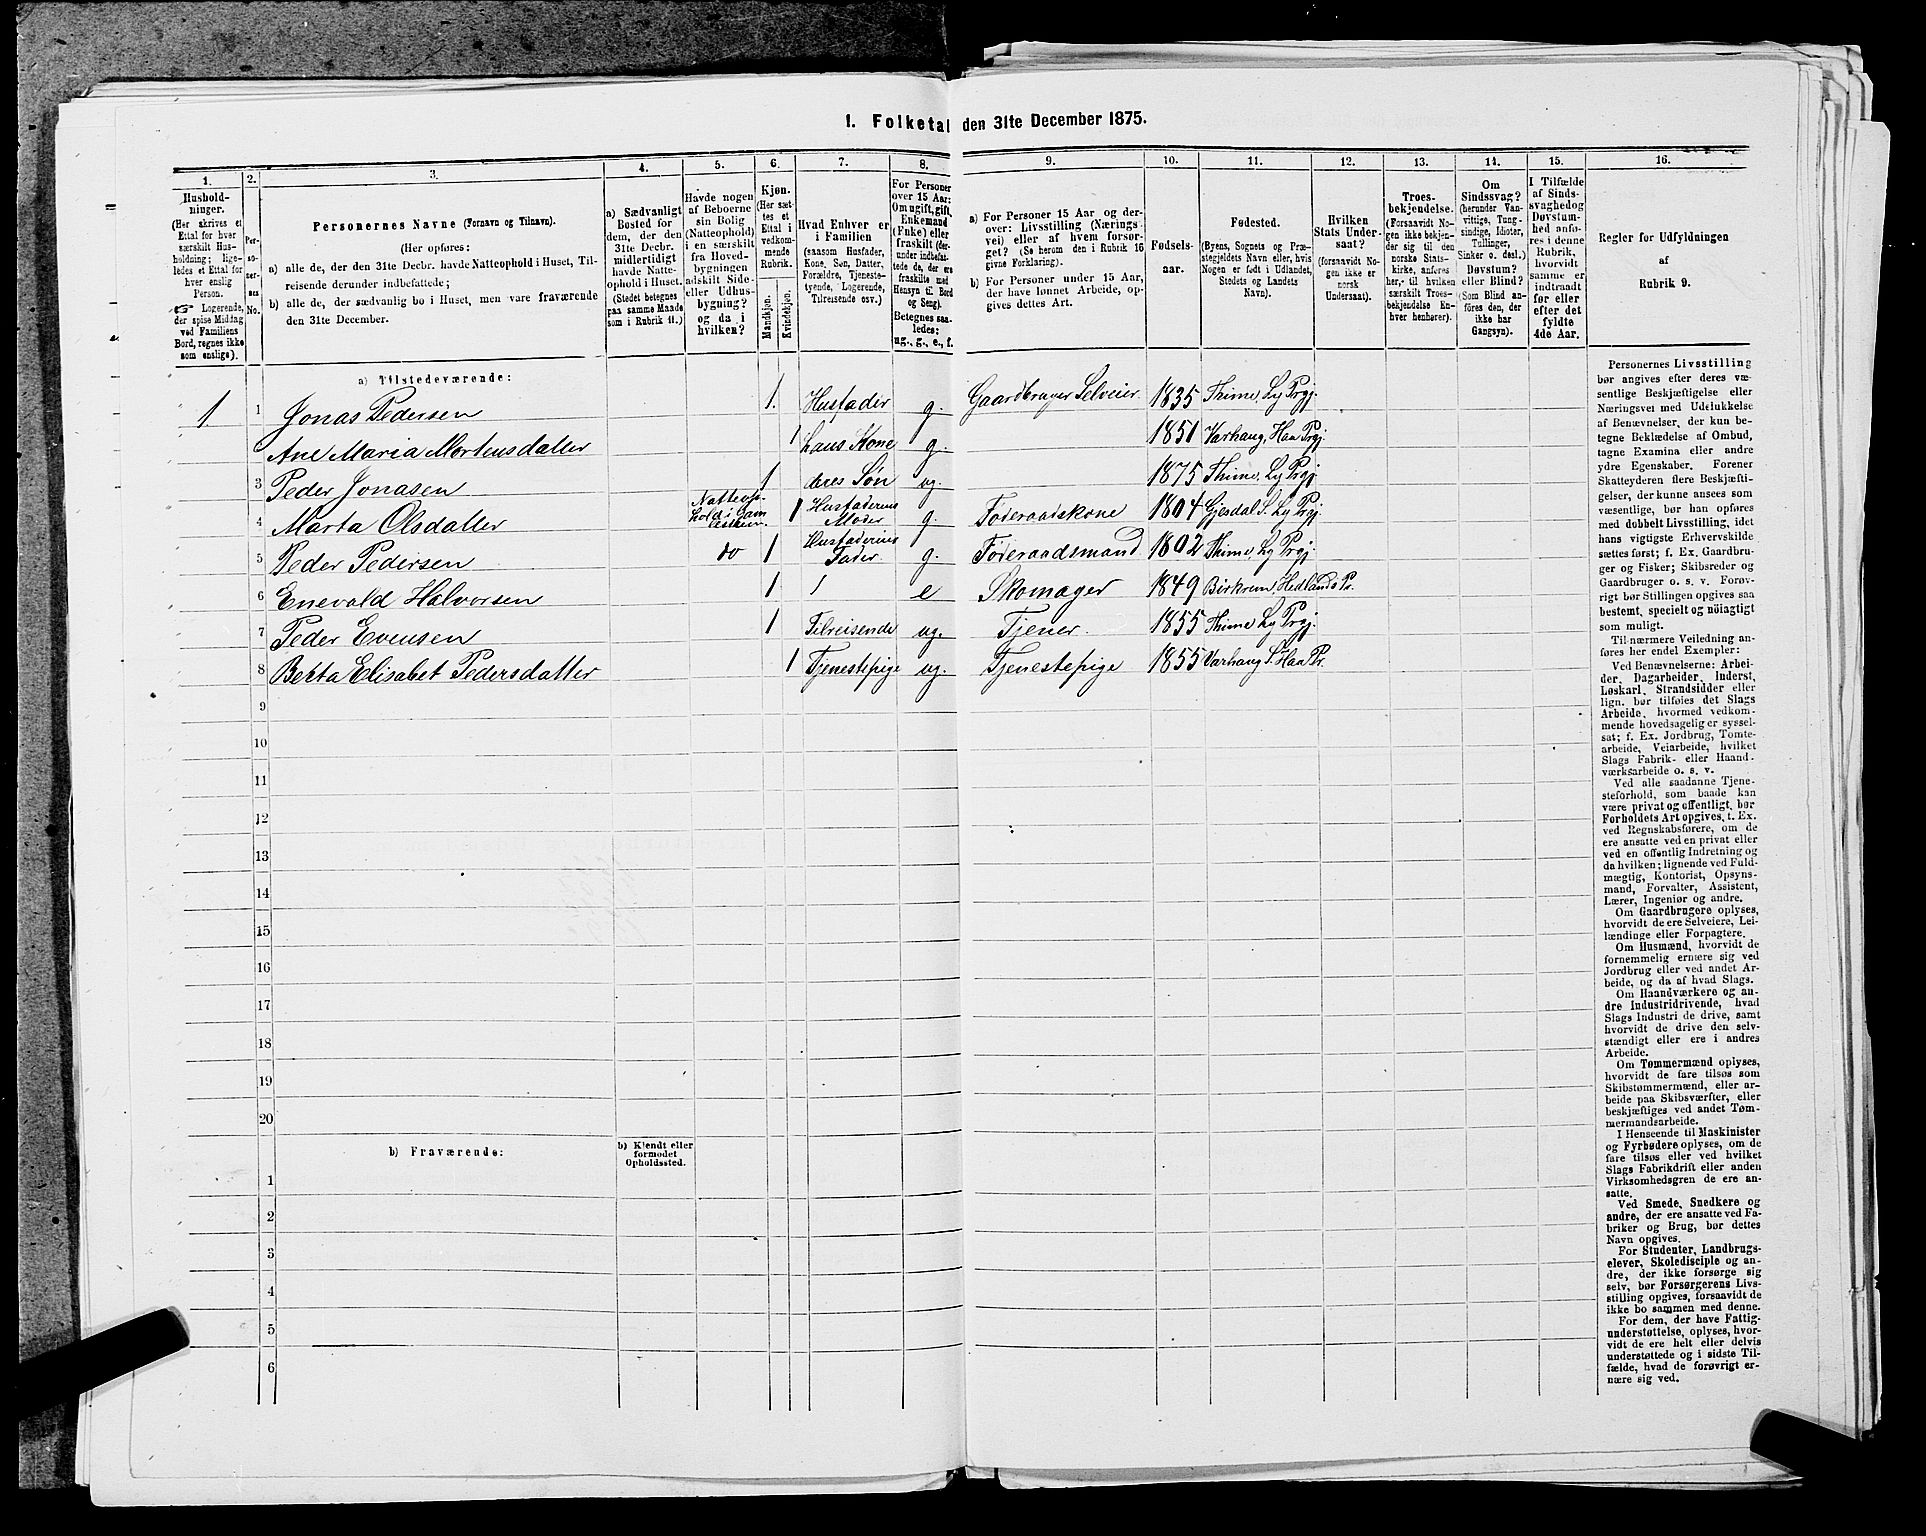 1. Folketal den 31te December 1875.
1. 2. 3. 4. 5. 6. 7. 8. 9. 10. 11. 12. 13. 14. 15. 16.
Hushold-
ninger.
(Her skrives et
Ettal for hver
særskilt Hus-
holdning; lige-
ledes et Ettal for
hver enslig
Person.
Logerende,
der spise Middag
ved Familiens
Bord, regnes ikke
som enslige).
Per-
so-
ner-
nes
No.
Personernes Navne (Fornavn og Tilnavn).
(Her opføres:
a) alle de, der den 31te Decbr. havde Natteophold i Huset, Til-
reisende derunder indbefattede;
b) alle de, der sædvanlig bo i Huset, men vare fraværende
den 31te December.
a) Sædvanligt
Bosted for
dem, der den
31te Decbr.
midlertidigt
havde Natte-
ophold i Huset.
(Stedet betegnes
paa samme Maade
som i Rubrik 11.)
Havde nogen
af Beboerne
sin Bolig
(Natteophold)
i en særskilt
fra Hoved-
bygningen
adskilt Side-
eller Udhus-
bygning?
og da i
hvilken?
Kjøn.
(Her sæt-
tes et
Ettal i
vedkom-
mende
Rubrik.
Mandkjøn.
Kvindekjøn.
Hvad Enhver er
i Familien
(saasom Husfader,
Kone, Søn, Datter,
Forældre, Tjeneste-
tyende, Logerende,
Tilreisende osv.)
For Personer
over 15 Aar:
Om ugift, gift,
Enkemand
(Enke) eller
fraskilt (der-
under indbefat-
tede de, der ere
fraskilte med
Hensyn til Bord
og Seng).
Betegnes saa-
ledes:
ug., g., e., f.
a) For Personer 15 Aar og der-
over: Livsstilling (Nærings-
vei) eller af hvem forsør-
get? (Se herom den i Rubrik 16
givne Forklaring).
b) For Personer under 15 Aar,
der have lønnet Arbeide, op-
gives dettes Art.
Fødsels-
aar.
Fødested.
(Byens, Sognets og Præ-
stegjeldets Navn eller, hvis
Nogen er født i Udlandet,
Stedets og Landets
Navn).
Hvilken
Stats Under-
saat?
(forsaavidt No-
gen ikke er
norsk
Undersaat).
Troes-
bekjendelse.
(Forsaavidt No-
gen ikke bekjen-
der sig til den
norske Stats-
kirke, anføres
her, til hvilken
særskilt Troes-
bekjendelse En-
hver henhører).
Om
Sindssvag?
(herunder Van-
vittige, Tung-
sindige, Idioter,
Tullinger,
Sinker o. desl.)
Døvstum?
eller Blind?
(Som Blind an-
føres den, der
ikke har
Gangsyn).
I Tilfælde
af Sinds-
svaghed og
Døvstum-
hed anfø-
res i denne
Rubrik,
hvorvidt
samme er
indtraadt
før eller
efter det
fyldte
4de Aar.
Regler for Udfyldningen
af
Rubrik 9.
a) Tilstedeværende:
1 1 Jonas Pedersen 1. Husfader g. Gaardbruger Selveier 1835 Thime, Ly Prgj.
Ane Maria Mortensdatter 1 hans Kone g. 1851 Varhaug, Haa Prgj.
3 Peder Jonasen 1 deres Søn ug. 1875 Thime, Ly Prgj
4 Marta Olsdatter 1 Husfaderens Moder g. Føderaadskone 1804 Gjesdal S. Ly Prgj.
5 Peder Pedersen do 1 Husfaderens Fader g. Føderaadsmand 1802 Thime, Ly Prgj.
6 Enevald Halvorsen 1 1 e Skomager 1849 Birkrem, Hedlands Pr.
7 Peder Evensen 1 Tilreisende ug. Tjener. 1855 Thime Ly Prgj.
8 Berta Elisabet Pedersdatter 1 Tjenestepige ug. Tjenestepige 1855 Varhaug S. Haa Pr.
9
10
11
12
13
14
15
16
17
18
19
20
b) Fraværende:
b) Kjendt eller
formodet
Opholdssted.
1
2
3
4
5
6
Personernes Livsstilling
bør angives efter deres væ-
sentlige Beskjæftigelse eller
Næringsvei med Udelukkelse
af Benævnelser, der kun be-
tegne Beklædelse af Ombud,
tagne Examina eller andre
ydre Egenskaber. Forener
Skatteyderen flere Beskjæfti-
gelser, der kunne ansees som
væsentlige, bør han opføres
med dobbelt Livsstilling, idet
hans vigtigste Erhvervskilde
sættes først; f. Ex. Gaardbru-
ger og Fisker; Skibsreder og
Gaardbruger o. s. v. Forøv-
rigt bør Stillingen opgives saa
bestemt, specielt og nöiagtigt
som muligt.
Til nærmere Veiledning an-
føres her endel Exempler:
Ved Benævnelserne: Arbei-
der, Dagarbeider, Inderst,
Løskarl, Strandsidder eller
lign. bør tilføies det Slags
Arbeide, hvormed vedkom-
mende hovedsagelig er syssel-
sat; f. Ex. Jordbrug, Tomte-
arbeide, Veiarbeide, hvilket
Slags Fabrik- eller Haand-
værksarbeide o. s. v.
Ved alle saadanne Tjene-
steforhold, som baade kan
være privat og offentligt, bør
Forholdets Art opgives, t. Ex.
ved Regnskabsførere, om de
ere ansatte ved en privat eller
ved en offentlig Indretning og
da hvilken; lignende ved Fuld-
mægtig, Kontorist, Opsyns-
mand, Forvalter, Assistent,
Lærer, Ingeniør og andre.
Om Gaardbrugere oplyses,
hvorvidt de ere Selveiere, Lei-
lændinge eller Forpagtere.
Om Husmænd, hvorvidt de
fornemmelig ernære sig ved
Jordbrug eller ved andet Ar-
beide, og da af hvad Slags.
Om Haandværkere og an-
dre Industridrivende, hvad
Slags Industri de drive, samt
hvorvidt de drive den selv-
stændigt eller ere i andres
Arbeide.
Om Tømmermænd oplyses,
hvorvidt de fare tilsøs som
Skibstømmermænd, eller ar-
beide paa Skibsværfter, eller
beskjæftiges ved andet Tøm-
mermandsarbeide.
I Henseende til Maskinister
og Fyrbødere oplyses, om de
fare tilsøs eller ved hvilket
Slags Fabrikdrift eller anden
Virksomhedsgren de ere an-
satte.
Ved Smede, Snedkere og
andre, der ere ansatte ved Fa-
briker og Brug, bør dettes
Navn opgives.
For Studenter, Landbrugs-
elever, Skoledisciple og an-
dre, der ikke forsørge sig
selv, bør Forsørgerens Livs-
stilling opgives, forsaavidt de
ikke bo sammen med denne.
For dem, der have Fattig-
understøttelse, oplyses, hvor-
vidt de ere helt eller delvis
understøttede og i sidste Til-
fælde, hvad de forøvrigt er-
nære sig ved.